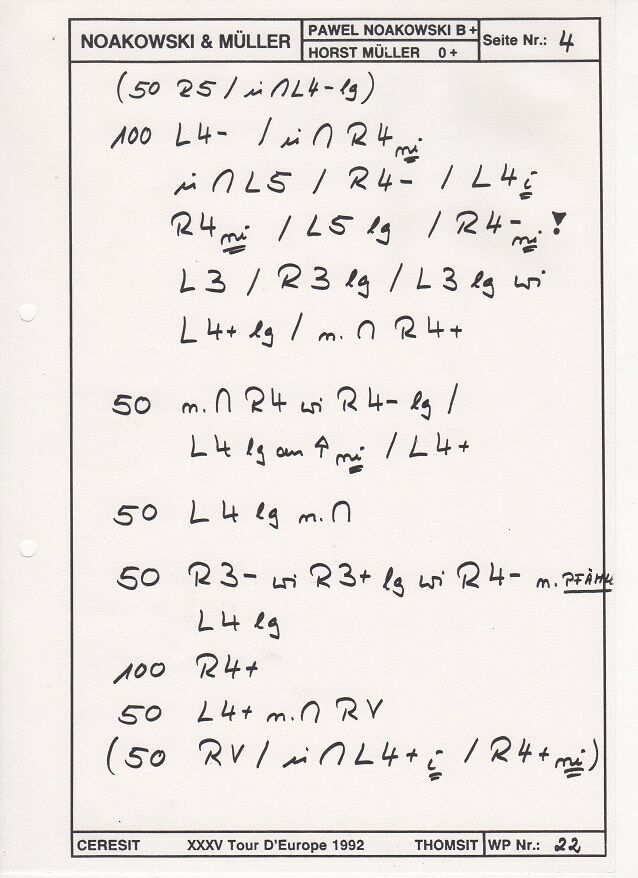 NOAKOWSKI & MÜLLER
PAWEL NOAKOWSKI B +
HORST MÜLLER 0 +
Seite Nr.: 4
(50 R5 / in ∩ L4- lg)
100 L4- / in ∩ R4 ni
in ∩ L5 / R4- / L4 i
R4 ni / L5 lg / R4- ni !
L3 / R3 lg / L3 lg wi
L4+ lg / n. ∩ R4+
50 n. ∩ R4 wi R4- lg /
L4 lg an ↑ ni / L4+
50 L4 lg n. ∩
50 R3- wi R3+ lg wi R4- n. PFÄHL
L4 lg
100 R4+
50 L4+ n. ∩ RV
(50 RV / in ∩ L4+ i / R4+ ni)
CERESIT XXXV Tour D'Europe 1992 THOMSIT WP Nr.: 22